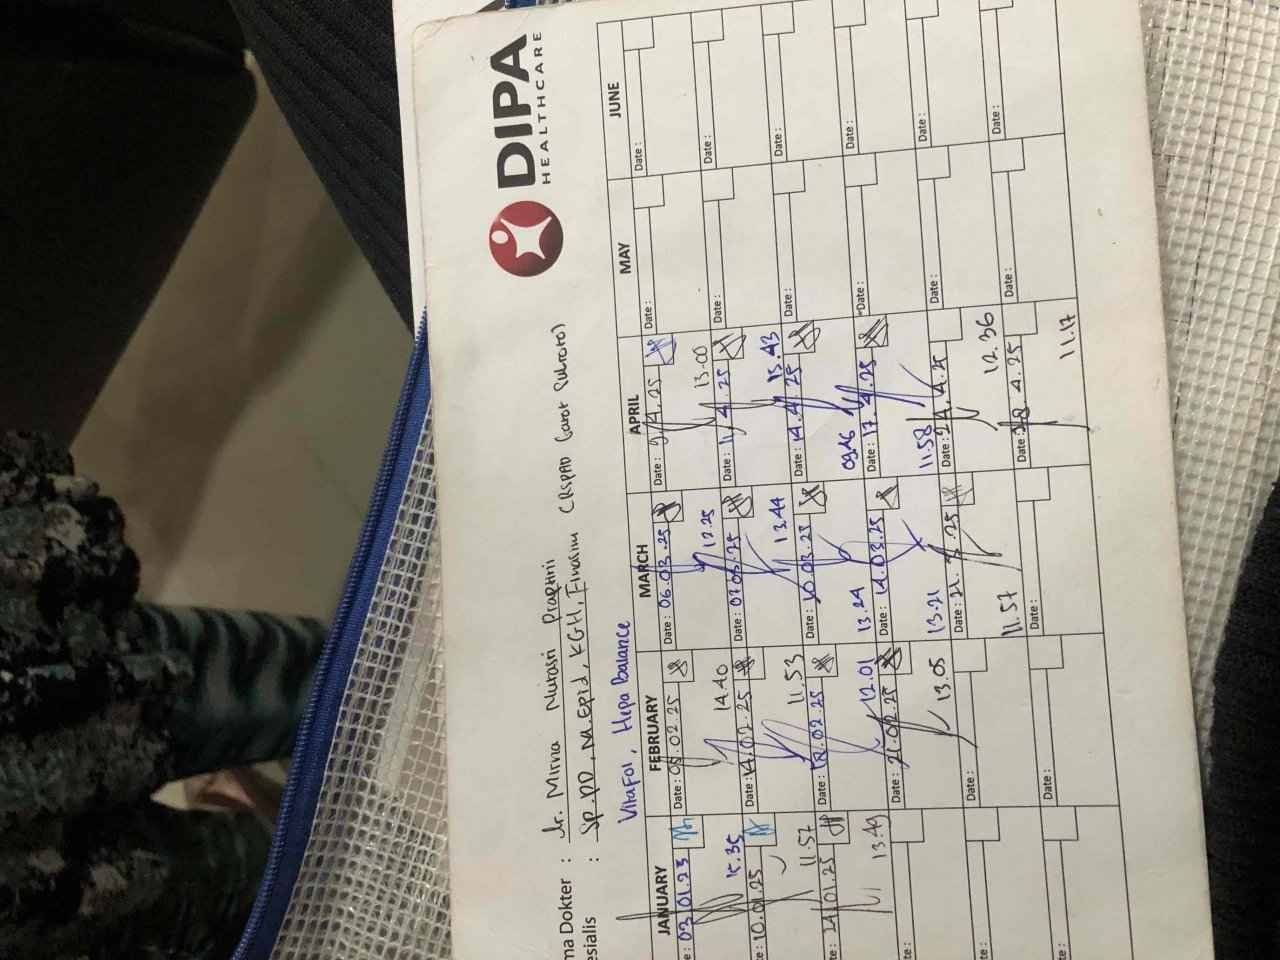 DIPA
HEALTHCARE
ma Dokter : dr. Mirna Nurasri Praptini
esialis : Sp.PD, M.Epid, KGH, Finasim (RSPAD Gatot Subroto)
Vitafol, Hepa Balance
JANUARY FEBRUARY MARCH APRIL MAY JUNE
e: 03.01.25 Date: 05.02.25 Date: 06.03.25 Date: .4.25 Date: Date:
15.35 14.40 12.25 13.00
e: 10.01.25 Date: 14.02.25 Date: 07.03.25 Date: 11.4.25 Date: Date:
11.57 11.53 13.44 15.43
e: 24.01.25 Date: 18.02.25 Date: 10.03.25 Date: 14.4.25 Date: Date:
13.49 12.01 13.24 09.46
e: Date: 21.02.25 Date: 14.03.25 Date: 17.4.25 Date: Date:
13.05 13.21 11.58
e: Date: Date: 21.3.25 Date: 24.4.25 Date: Date:
11.57 12.36
e: Date: Date: Date: 28.4.25 Date: Date:
11.17